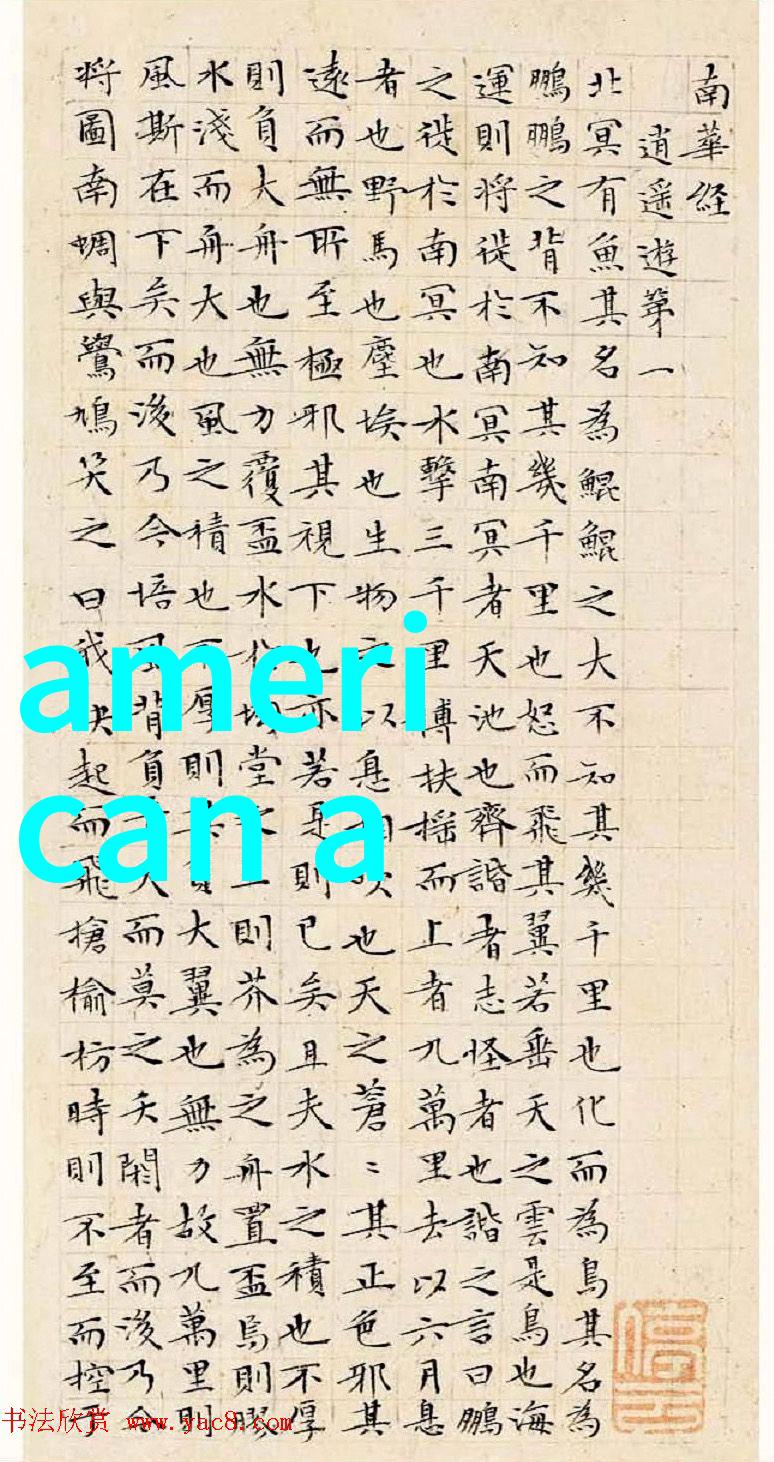 南華経
逍遥遊第一
北冥有魚其名為鯤鯤之大不知其幾千里也化而為鳥其名為
鵬鵬之背不知其幾千里也怒而飛其翼若垂天之雲是鳥也海
運則将徙於南冥南冥者天池也齊諧者志怪者也諧之言曰鵬
之徙於南冥也水擊三千里搏扶摇而上者九萬里去以六月息
者也野馬也塵埃也生物之以息相吹也天之蒼〻其正色邪其
遠而無所至極邪其視下也亦若是則已矣且夫水之積也不厚
則負大舟也無力覆盃水於坳堂之上則芥為之舟置盃焉則膠
水淺而舟大也風之積也不厚則其負大翼也無力故九萬里則
風斯在下矣而後乃今培風背負青天而莫之夭閼者而後乃今
将圖南蜩與鷽鳩笑之曰我決起而飛搶榆枋時則不至而控
ameri
can a
书法欣赏 www.yac8.com